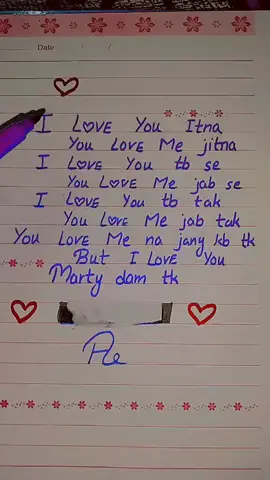 Date / /
I Love You Itna
You Love Me jitna
I Love You tb se
You Love Me jab se
I Love You tb tak
You Love Me jab tak
You Love Me na jany kb tk
But I Love You
Marty dam tk